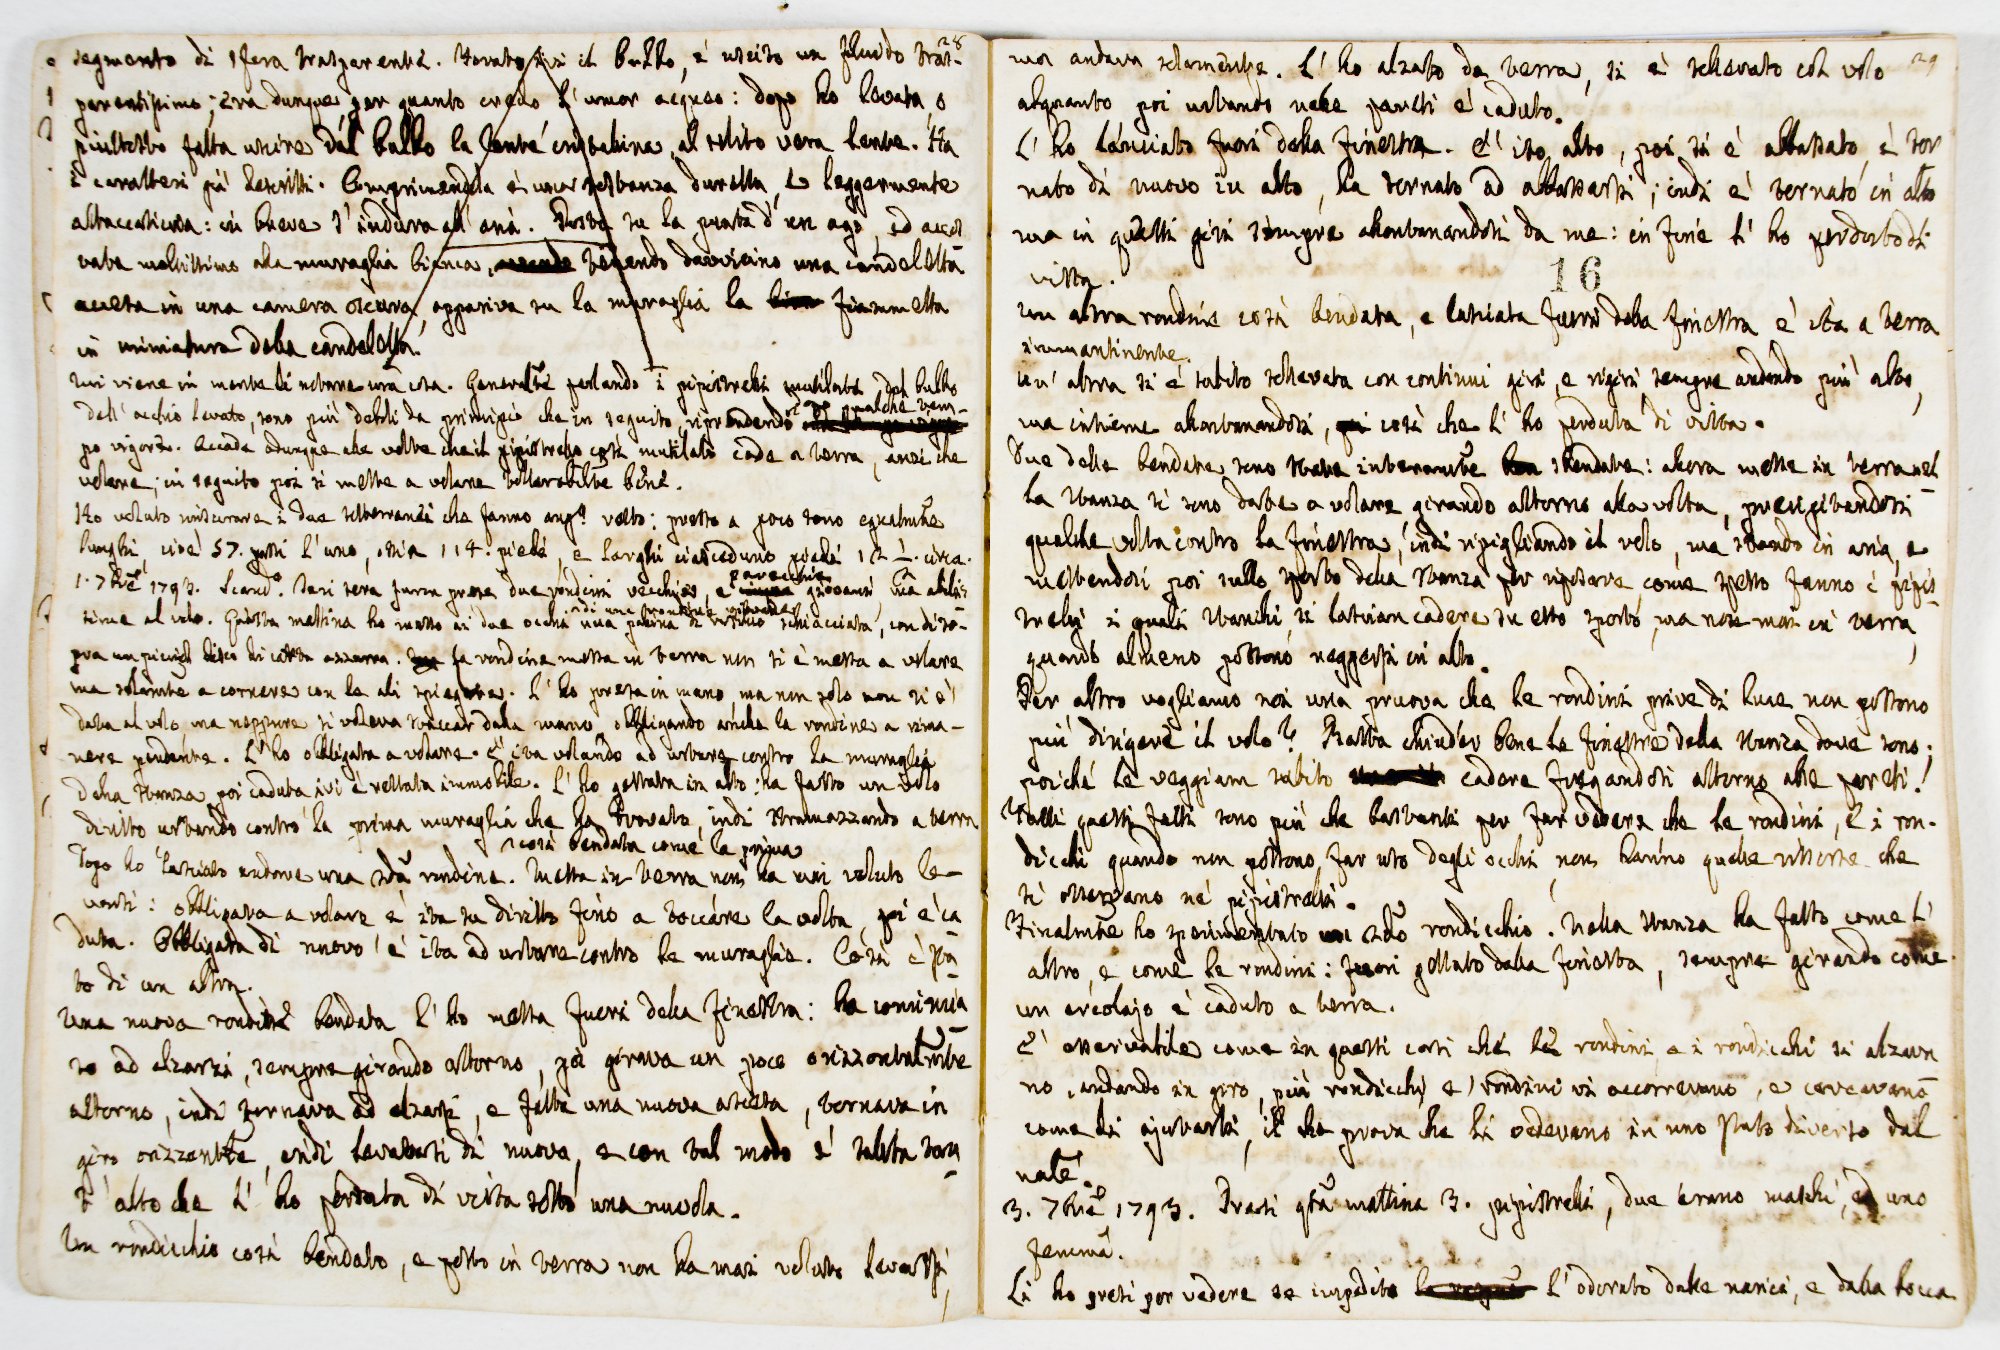 28
segmento di sfera trasparente. Forato ivi il bulbo, è uscito un fluido tras-
parentissimo; era dunque per quanto credo l'umor acqueo: dopo ho levata, o
piuttosto fatta uscire dal bulbo la lente cristalina, al solito vera lente. Ha
i caratteri già descritti. Comprimendola è una sostanza duretta, e leggermente
attaccaticcia: in breve s'indura all'aria. Posta su la punta d'un ago, ed accos
tata moltissimo alla muraglia bianca, tenendo davvicino una candeletta
accesa in una camera oscura, appariva su la muraglia la fiammetta
in miniatura della candeletta.
Mi viene in mente di notare una cosa. Generalte parlando i pipistrelli mutilati del bulbo
dell'occhio levato, sono più deboli da principio che in seguito, riprendendo qualche tem-
po vigore. Accade adunque alle volte che il pipistrello così mutilato cade a terra, anzi che
volare; in seguito poi si mette a volare bene.
Ho voluto misurare i due sotterranei che fanno volto: presso a poco sono egualmte
lunghi, cioè 57. passi l'uno, ossia 114. piedi, e larghi ciascaduno piedi 12 1/2. circa.
1. 7bre 1793. Jeri sera furon prese due rondini vecchie, e parecchie giovani ma abilis
sime al volo. Questa mattina ho messo ai due occhi una schiacciata, con di so-
pra un picciol disco di carta azzurra. La rondine messa in terra non si è messa a volare
ma solamte a correre con le ali spiegate. L'ho presa in mano ma non solo non si è
data al volo ma neppure si voleva staccar dalla mano obbligando anche la rondine a rima-
nere pendente. L'ho obbligata a volare. E' ita volando ad urtare contro la muraglia
della stanza, poi caduta ivi è restata immobile. L'ho gettata in alto: ha fatto un volo
diritto urtando contro la prima muraglia che ha trovata, indi stramazzando a terra
così bendata come la prima
Dopo ho lasciato andare una 2da rondine. Messa in terra non ha mai voluto le-
varsi: obbligata a volare è ita su diritto fino a toccare la volta, poi è ca
duta. Obbligata di nuovo è ita ad urtare contro le muraglie. Così è sta
to di un altra.
Una nuova rondine bendata l'ho messa fuori della finestra: ha cominia
to ad alzarsi, sempre girando attorno, poi girava un poco orizzontalmte
attorno, indi tornava ad alzarsi, e fatta una nuova ascesa, tornava in
giro orizzontle, indi levatasi di nuovo, e con tal modo è salita tan
t'alto che l'ho perduta di vista sotto una nuvola.
Un rondicchio così bendato, e posto in terra non ha mai voluto levarsi,
29
ma andava solamente. L'ho alzato da terra, si è sollevato col volo
alquanto poi urtando nelle pareti è caduto.
L'ho lanciato fuori della finestra. E' ito alto, poi si è abbassato, è tor
nato di nuovo in alto, ha tornato ad abbassarsi; indi è tornato in alto
ma in questi giri sempre allontanandosi da me: in fine l'ho perduto di
vista.
16
Un altra rondine così bendata, e lasciata fuori della finestra è ita a terra
immantinente.
Un'altra si è subito sollevata con continui giri, e rigiri sempre andando più alto,
ma insieme allontanandosi, così che l'ho perduta di vista.
Due delle bendate sono state interamte sbendate: allora messe in terra nel
la stanza si sono date a volare girando attorno alla volta, precipitandosi
qualche volta contro la finestra, indi ripigliando il volo, ma stando in aria, e
mettendosi poi sullo sporto della stanza per riposare come spesso fanno i pipis-
trelli i quali stanchi, si lasciano cadere su esso sporto, ma non mai in terra,
quando almeno possono reggersi in alto.
Per altro vogliamo noi una pruova che le rondini prive di luce non possono
più dirigere il volo? Basta chiuder bene le finestre della stanza dove sono;
poiché le veggiam subito cadere fregandosi attorno alle pareti!
Tutti questi fatti sono più che bastanti per far vedere che le rondini, e i ron-
dicchi quando non possono far uso degli occhi, non hanno quelle risorse che
si osservano ne' pipistrelli.
Finalmte ho sperimentato un 2do rondicchio. Nella stanza ha fatto come l'
altro, e come le rondini: fuori gettato dalla finestra, sempre girando come
un arcolajo è caduto a terra.
E' osservabile come in questi casi che le rondini e i rondicchi si alzavan
no, andando in giro, più rondicchj e rondini vi accorrevano, e cercavano
come di ajutarli, il che prova che li vedevano in uno stato diverso dal
nale.
3. 7bre 1793. Presi qta mattina 3. pipistrelli, due erano maschi, ed uno
femina.
Li ho presi per vedere se impedito l'odorato dalle narici, e dalla bocca